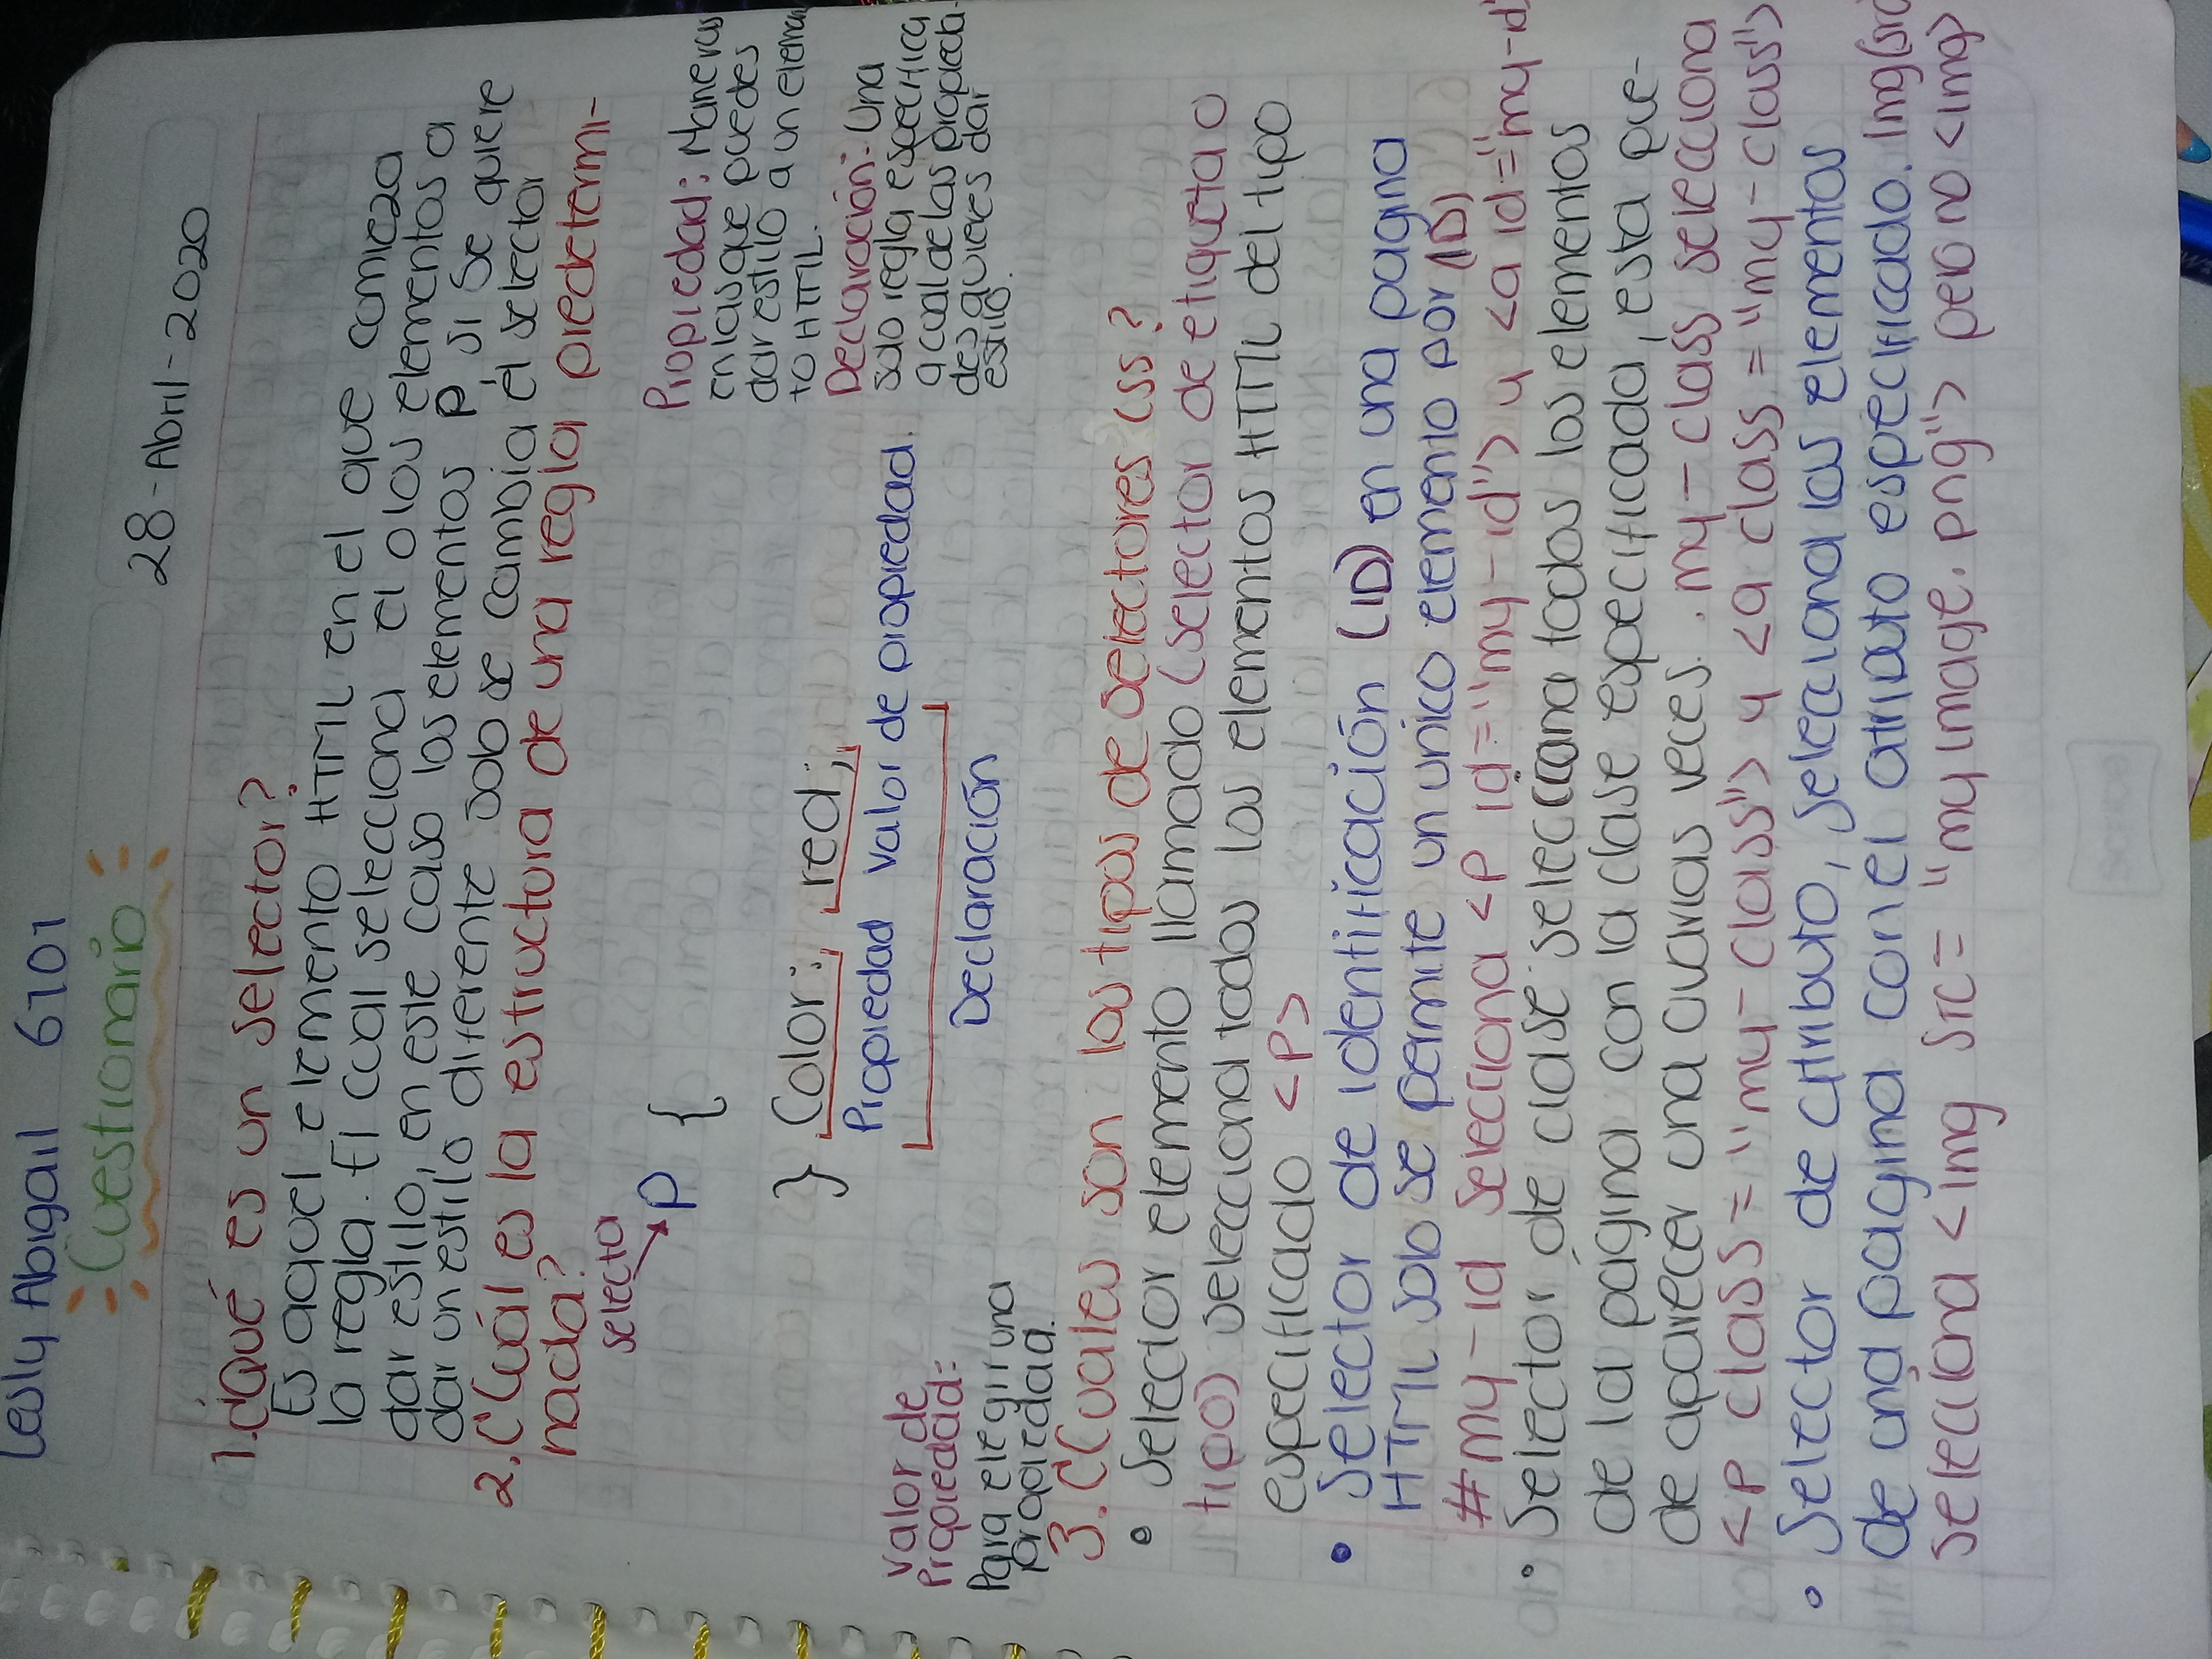 Lesly Abigail 6701
Cuestionario
28-Abril-2020
1.¿Qué es un selector?
Es aquel elemento HTML en el que comieza
la regla. El cual selecciona el o los elementos a
dar estilo, en este caso los elementos P, si se quiere
dar un estilo diferente solo se cambia el selector
2.¿Cuál es la estructura de una regla predetermi-
nada?
selector
P {
} Color: red;
Propiedad valor de propiedad.
Declaración
Propiedad: Maneras
en las que puedes
dar estilo a un elemen
to HTML.
Declaración: Una
solo regla especifica
a cual de las propieda-
des quieres dar
estilo.
valor de
Propiedad:
Para elegir una
propiedad.
3. ¿Cuales son los tipos de selectores css?
• Selector elemento llamado (selector de etiqueta o
tipo) selecciona todos los elementos HTML del tipo
especificado <P>
• Selector de identificación (ID) en una pagina
HTML solo se permite un unico elemento por (ID)
#my-id selecciona <P id="my-id"> y <a id="my-id"
• Selector de clase selecciona todos los elementos
de la página con la clase especificada, esta pue-
de aparecer una o varias veces. .my-class selecciona
<P class="my-class"> y <a class="my-class">
• Selector de atributo, selecciona los elementos
de una pagina con el atributo especificado. Img(src
selecciona <img src="myimage.png"> pero no <img>
Scribe